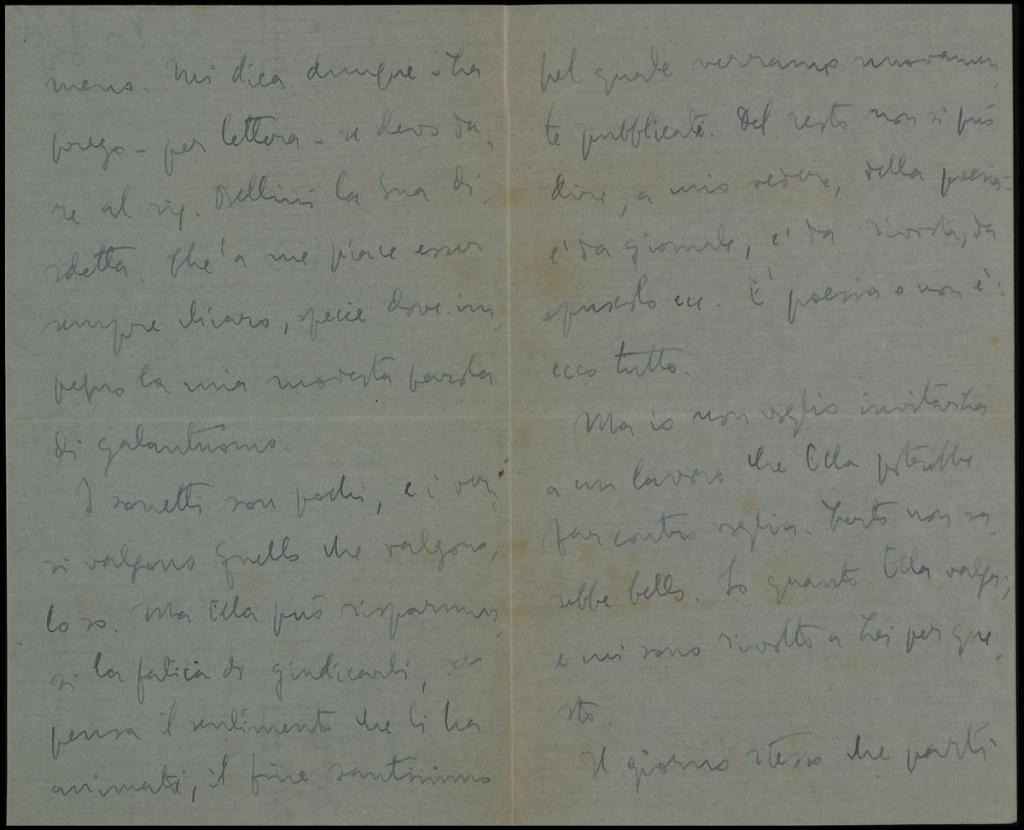 meno. Mi dica dunque - La
prego - per lettera - se devo da,
re al sig. Bellini la Sua di,
sdetta. Ché a me piace esser
sempre chiaro, specie dove im,
pegno la mia modesta parola
di galantuomo.
I sonetti son pochi, e i ver,
si valgono quello che valgono,
lo so. Ma Ella può risparmiar,
si la fatica di giudicarli, se
pensa il sentimento che li ha
animati, il fine santissimo
pel quale verranno nuovamen,
te pubblicati. Del resto non si può
dire, a mio vedere, della poesia:
è da giornale, è da rivista, da
opuscolo ecc. È poesia o non è:
ecco tutto.
Ma io non voglio invitarLa
a un lavoro che Ella potrebbe
far contro voglia. Certo non sa,
rebbe bello. So quanto Ella valga;
e mi sono rivolto a Lei per que,
sto.
Il giorno stesso che partì